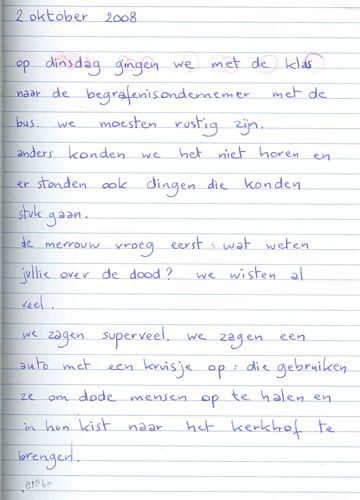 2 oktober 2008
op dinsdag gingen we met de klas
naar de begrafenisondernemer met de
bus. we moesten rustig zijn.
anders konden we het niet horen en
er stonden ook dingen die konden
stuk gaan.
de merrouw vroeg eerst : wat weten
jullie over de dood? we wisten al
veel.
we zagen superveel. we zagen een
auto met een kruisje op : die gebruiken
ze om dode mensen op te halen en
in hun kist naar het kerkhof te
brengen.